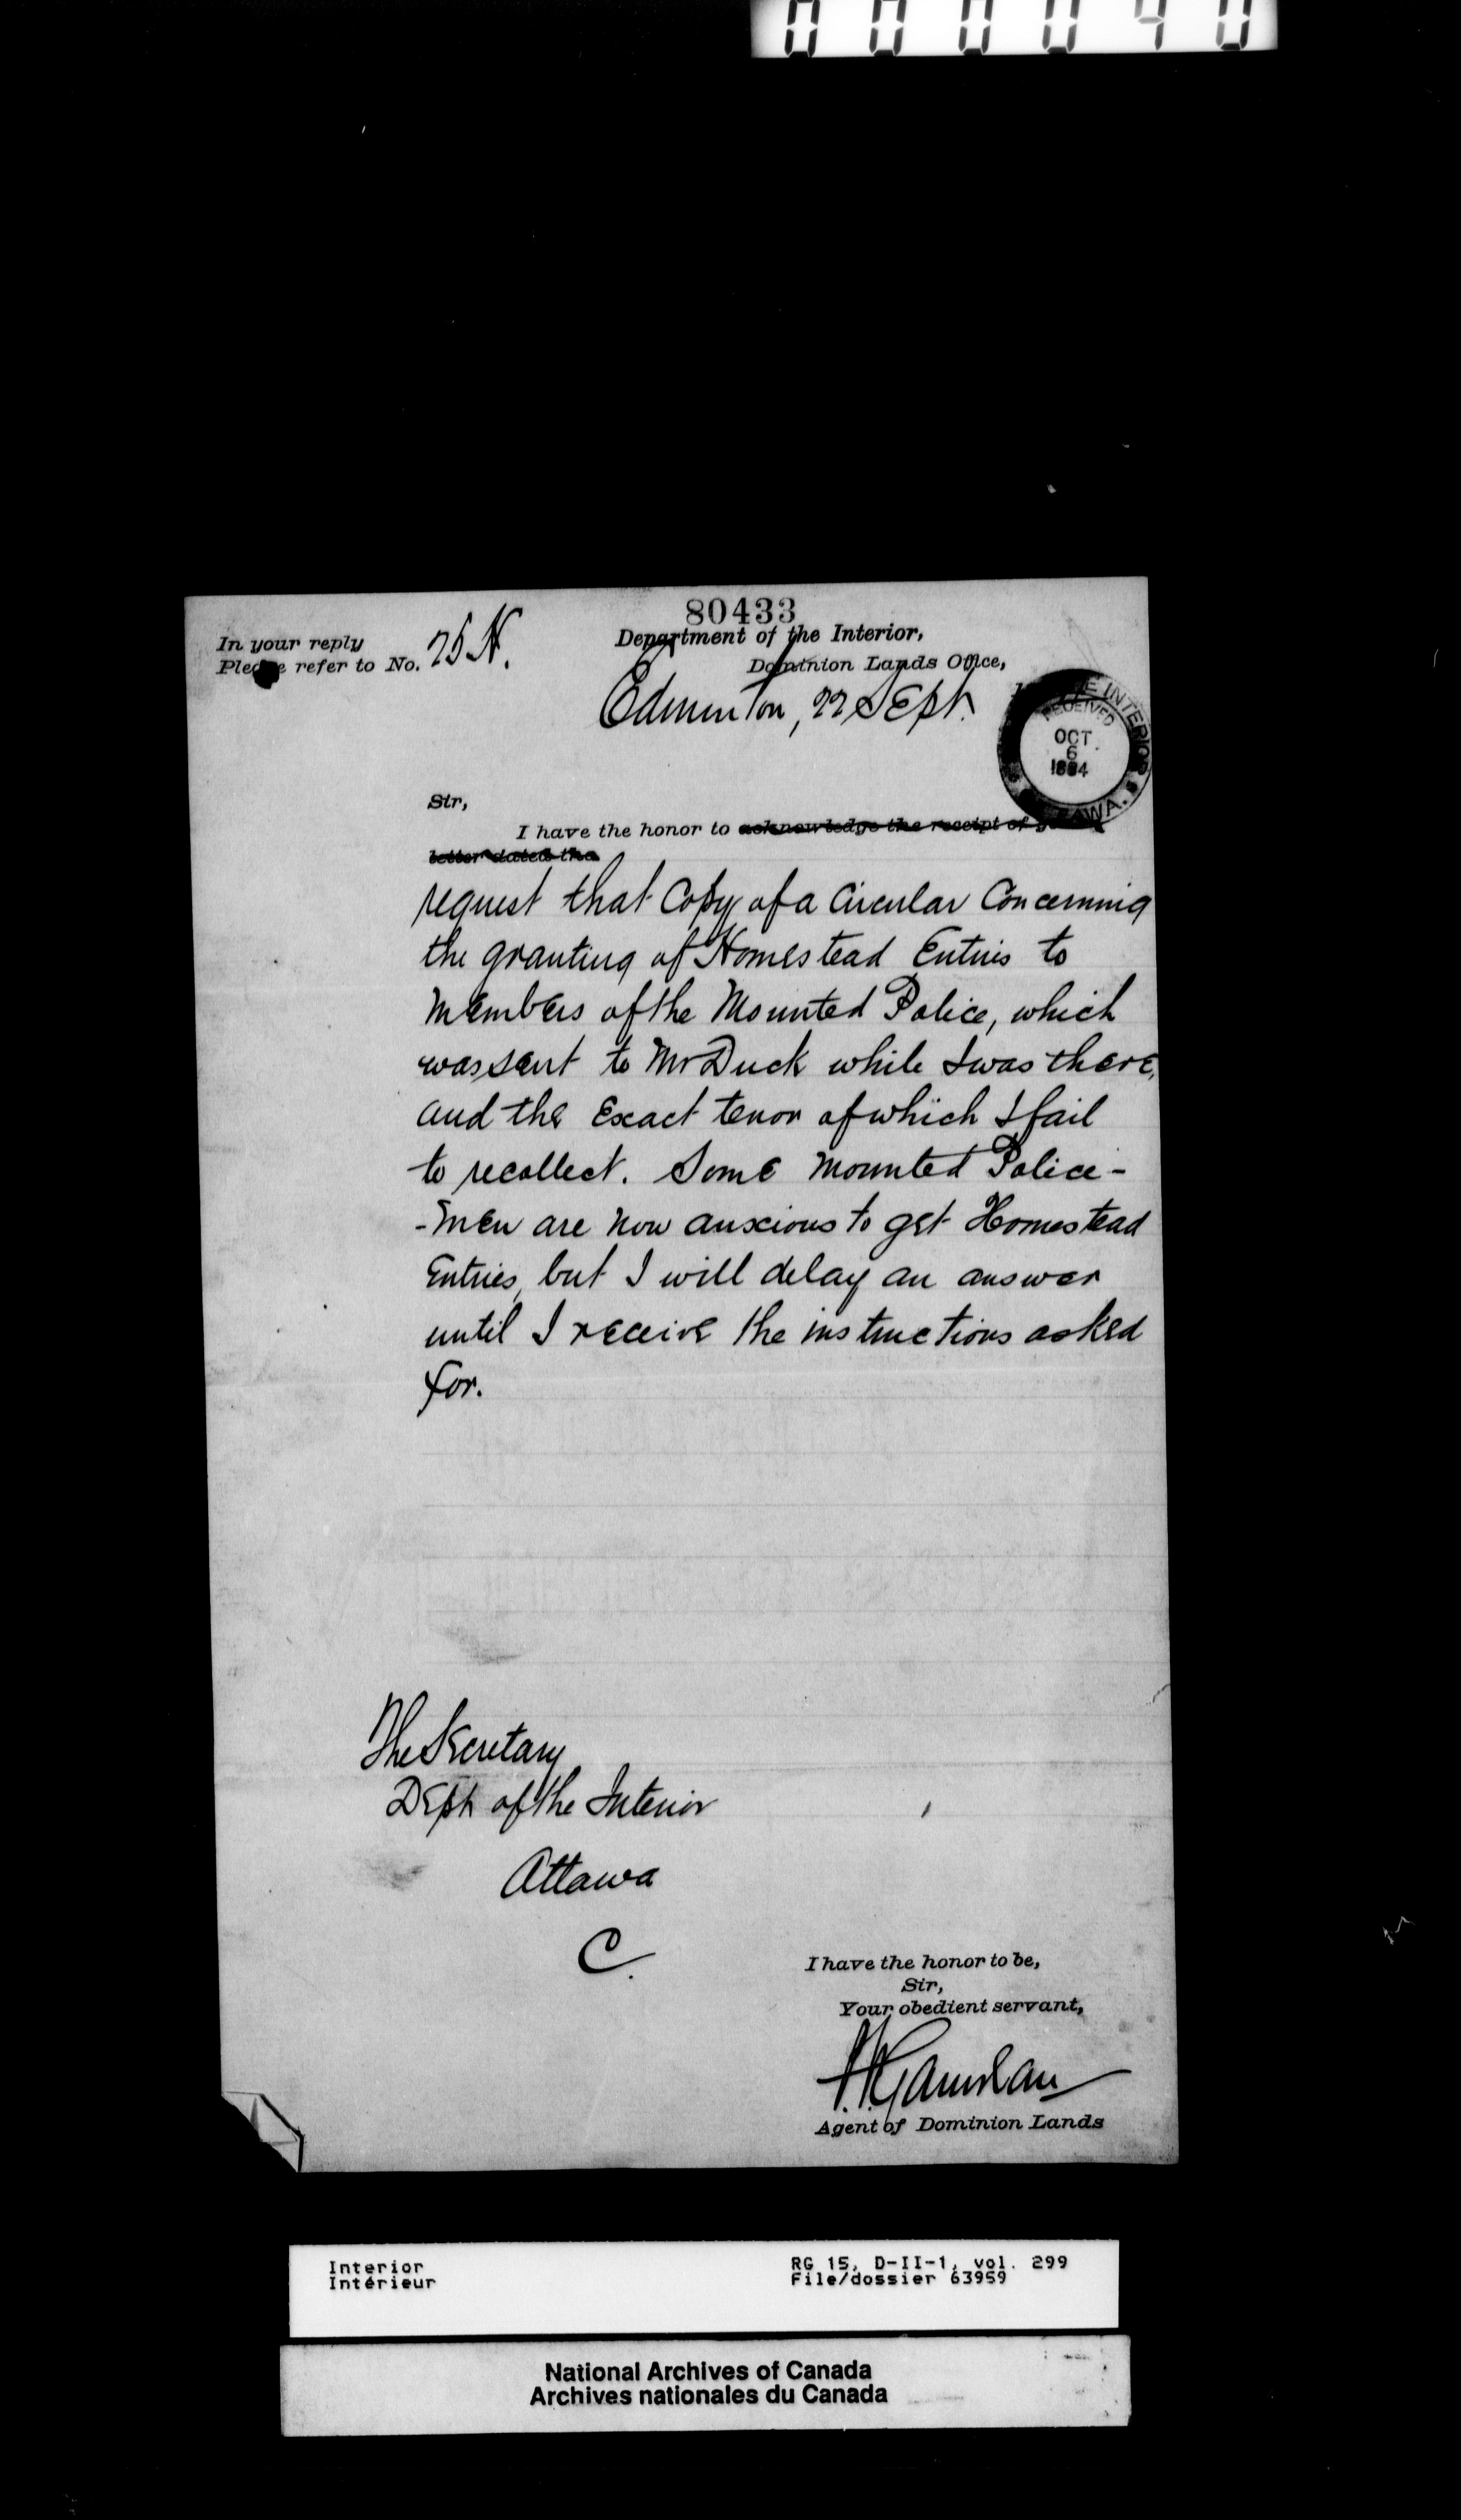 000040
80433
In your reply
Please refer to No. 25 N.
Department of the Interior,
Dominion Lands Office,
Edmonton, 22 Sept.
THE INTERIOR
RECEIVED
OCT.
6
1884
Sir,
I have the honor to acknowledge the receipt of
letter dated the
request that Copy of a Circular Concerning
the granting of Homestead Entries to
Members of the Mounted Police, which
was sent to Mr Duck while I was there,
and the Exact tenor of which I fail
to recollect. Some Mounted Police-
-Men are now anxious to get Homestead
Entries, but I will delay an answer
until I receive the instructions asked
for.
The Secretary
Dept of the Interior
Ottawa
C.
I have the honor to be,
Sir,
Your obedient servant,
Agent of Dominion Lands
Interior
Intérieur
RG 15, D-II-1, vol. 299
File/dossier 63959
National Archives of Canada
Archives nationales du Canada